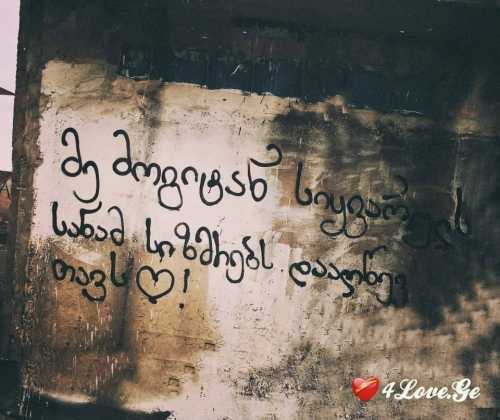 მე მოგიტან სიყვარულს
სანამ სიზმრებს დააღწევ
თავს♡!
4Love.Ge